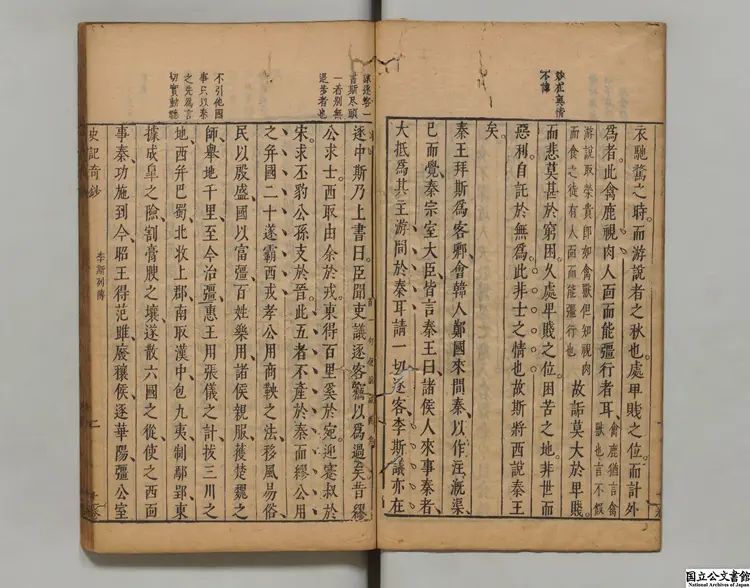 妙在真情
不諱
衣馳騖之時而游說者之秋也處卑賤之位而計不
為者此禽鹿視肉人面而能彊行者耳
禽鹿猶言禽
獸也言不
游說取榮貴即如禽獸但知視肉
而食之徒有人面而能彊行也
故詬莫大於卑賤
而悲莫甚於窮困久處卑賤之位困苦之地非世而
惡利自託於無為此非士之情也故斯將西說秦王
矣
秦王拜斯為客卿會韓人鄭國來間秦以作注溉渠
已而覺秦宗室大臣皆言秦王曰諸侯人來事秦者
大抵為其主游間於秦耳請一切逐客李斯議亦在
書斯尽頭
一着別無
退步者也
逐中斯乃上書曰臣聞吏議逐客竊以為過矣昔繆
公求士西取由余於戎東得百里奚於宛迎蹇叔於
宋求丕豹公孫支於晉此五者不產於秦而繆公用
之并國二十遂霸西戎孝公用商鞅之法移風易俗
民以殷盛國以富彊百姓樂用諸侯親服獲楚魏之
不引他國
事只以秦
之先為言
切實動聽
師舉地千里至今治彊惠王用張儀之計拔三川之
地西并巴蜀北收上郡南取漢中包九夷制鄢郢東
據成臯之險割膏腴之壤遂散六國之從使之西面
事秦功施到今昭王得范雎廢穰侯逐華陽彊公室
史記奇鈔 李斯列傳 二
国立公文書館
National Archives of Japan